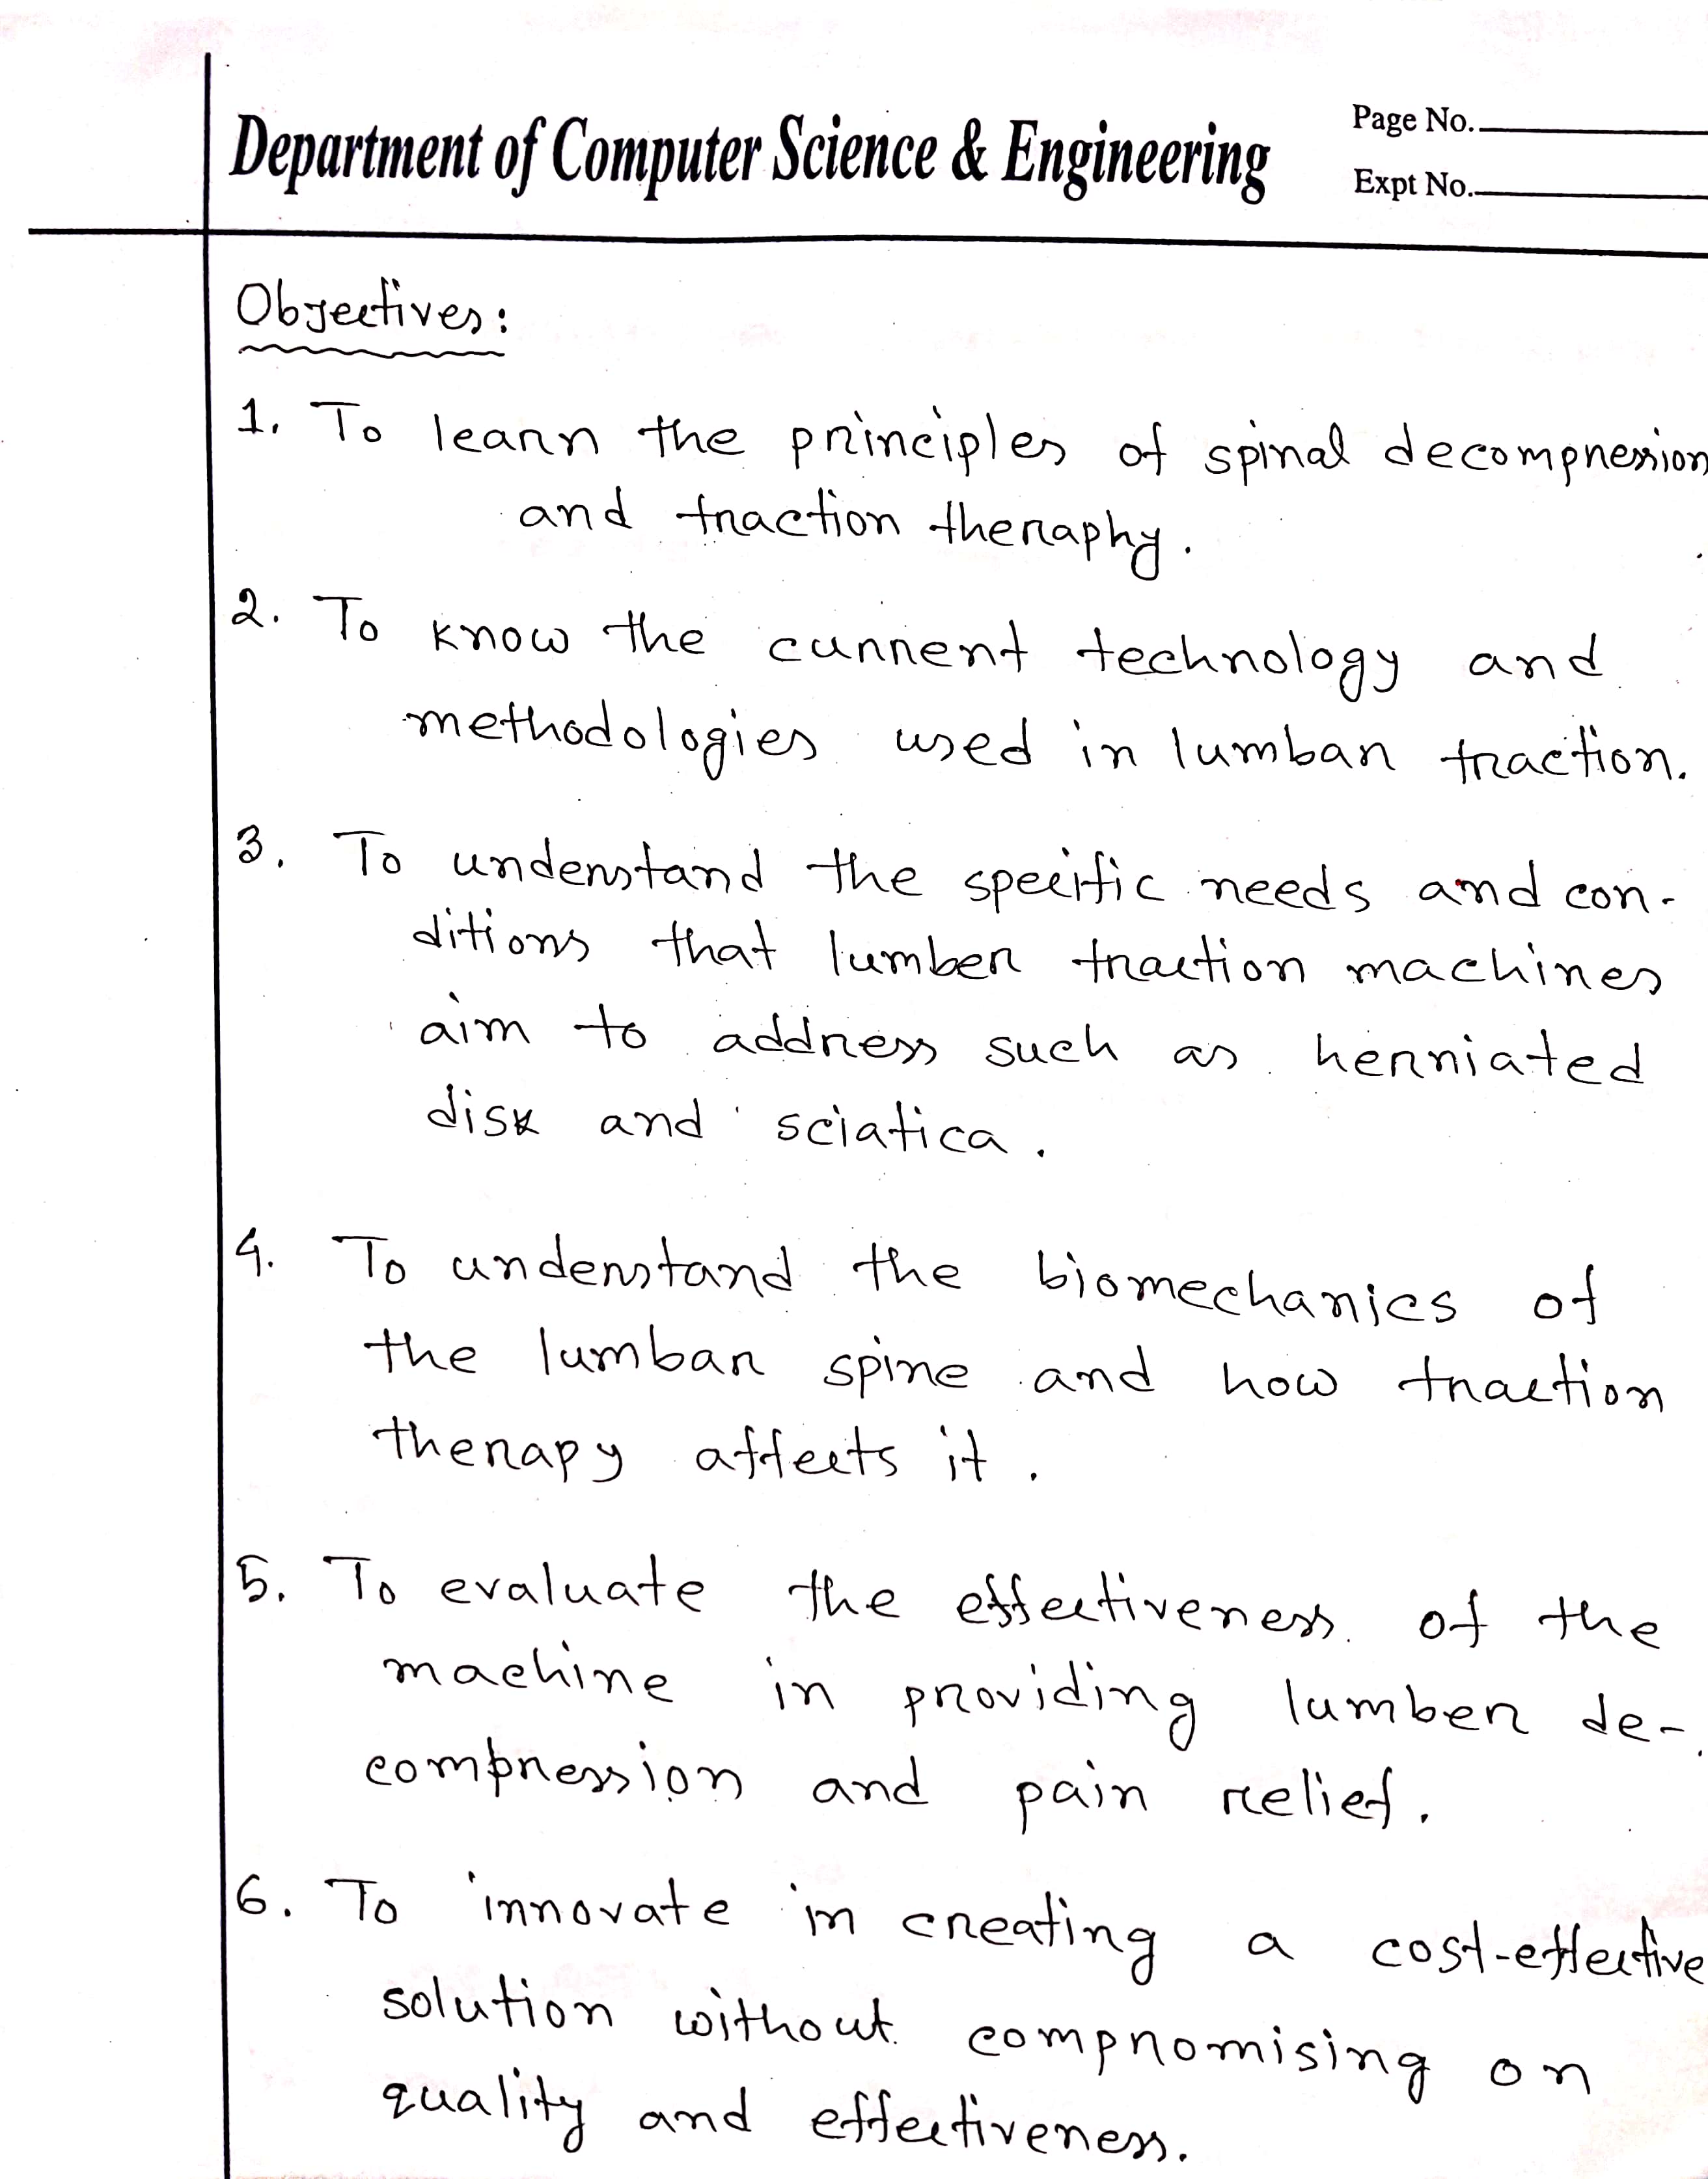 Department of Computer Science & Engineering
Page No.
Expt No.
Objectives:
1. To learn the principles of spinal decompression
and traction theraphy.
2. To know the current technology and
methodologies used in lumbar traction.
3. To understand the specific needs and con-
ditions that lumber traction machines
aim to address such as herniated
disk and sciatica.
4. To understand the biomechanics of
the lumbar spine and how traction
therapy affects it.
5. To evaluate the effectiveness of the
machine in providing lumber de-
compression and pain relief.
6. To innovate in creating a cost-effective
solution without compromising on
quality and effectiveness.